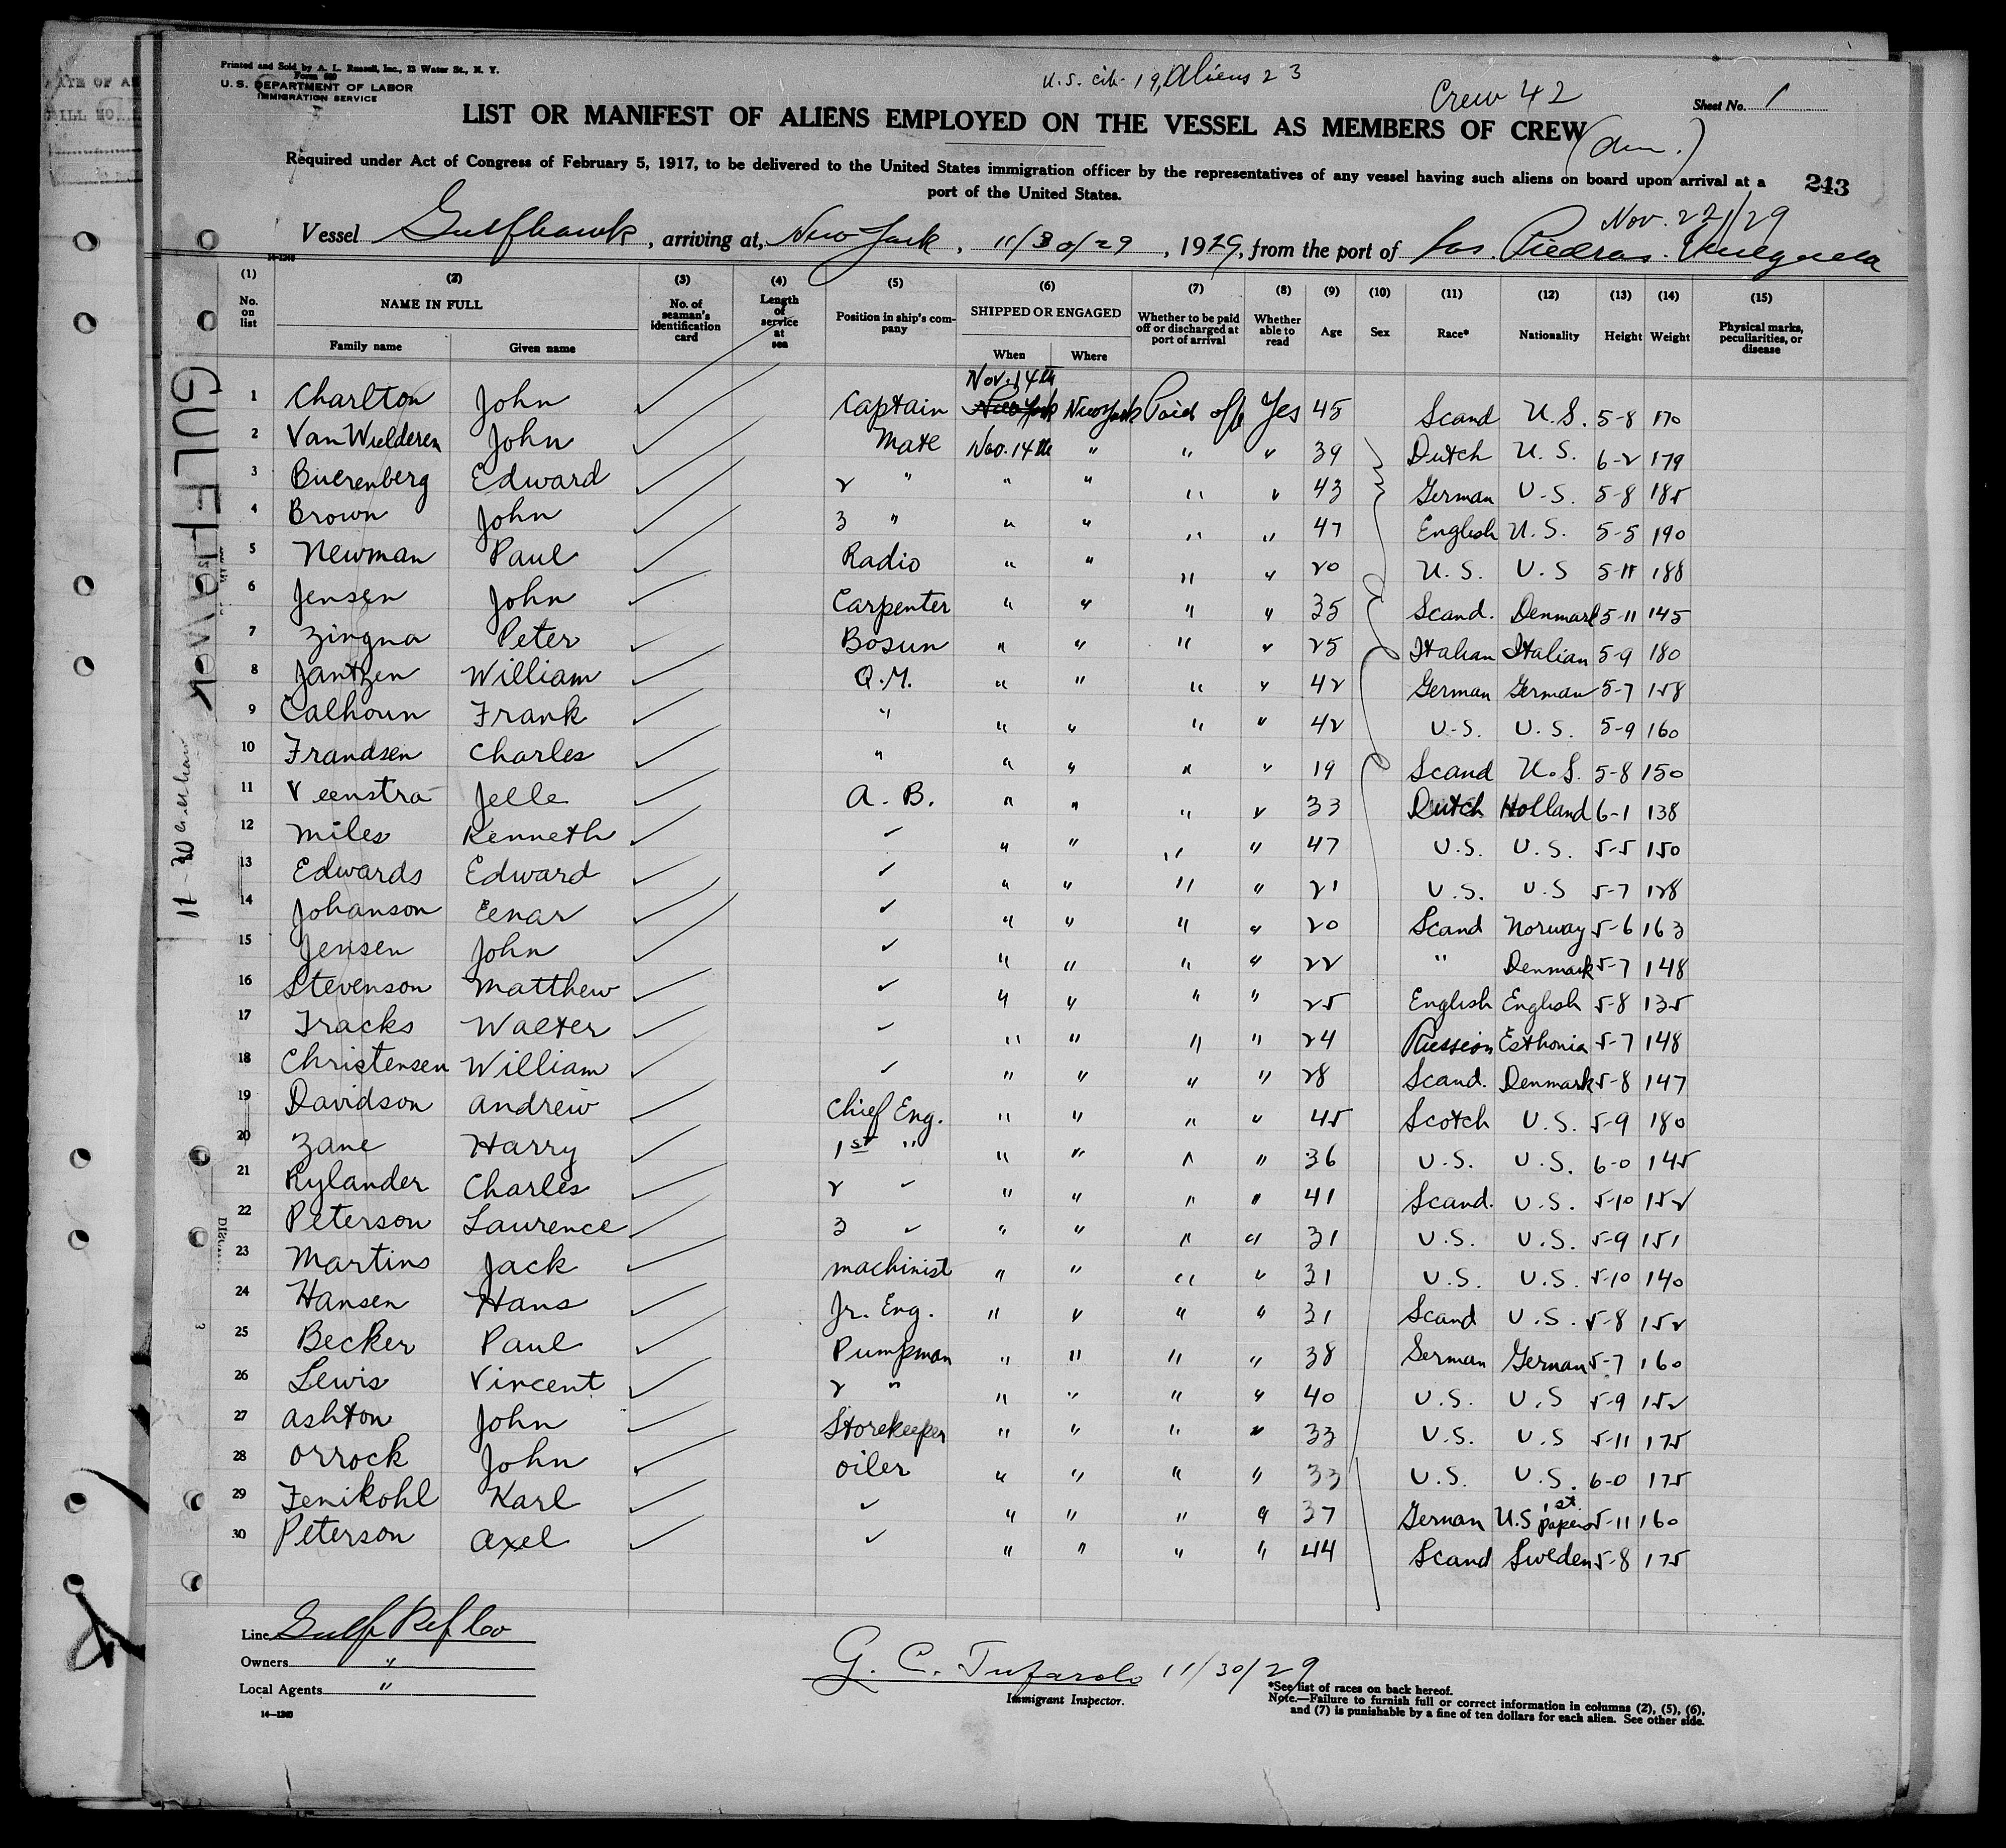 Printed and Sold by A. L. Russell, Inc., 13 Water St., N. Y.
U.S. cit. 19, Aliens 23
Form 689
U. S. DEPARTMENT OF LABOR
IMMIGRATION SERVICE
Crew 42
Sheet No. 1
LIST OR MANIFEST OF ALIENS EMPLOYED ON THE VESSEL AS MEMBERS OF CREW
Required under Act of Congress of February 5, 1917, to be delivered to the United States immigration officer by the representatives of any vessel having such aliens on board upon arrival at a
port of the United States.
243
Nov. 22/29
Vessel Gulfhawk, arriving at, New York, 11/30/29, 1929, from the port of Las Piedras Venezuela
14-1240
(1) (2) (3) (4) (5) (6) (7) (8) (9) (10) (11) (12) (13) (14) (15)
No. on list NAME IN FULL No. of seaman's identification card Length of service at sea Position in ship's company SHIPPED OR ENGAGED Whether to be paid off or discharged at port of arrival Whether able to read Age Sex Race* Nationality Height Weight Physical marks, peculiarities, or disease
Family name Given name When Where
Nov. 14th
1 Charlton John Captain New York New York Paid off Yes 45 Scand U.S. 5-8 170
2 Van Wulderen John Mate Nov. 14th " " " 39 Dutch U.S. 6-2 179
3 Buerenberg Edward 2 " " " " " 43 German U.S. 5-8 185
4 Brown John 3 " " " " " 47 English U.S. 5-5 190
5 Newman Paul Radio " " " " 20 U.S. U.S 5-11 188
6 Jensen John Carpenter " " " " 35 Scand. Denmark 5-11 145
7 Zingna Peter Bosun " " " " 25 Italian Italian 5-9 180
8 Jantzen William Q.M. " " " " 42 German German 5-7 158
9 Calhoun Frank " " " " " 42 U.S. U.S. 5-9 160
10 Frandsen Charles " " " " " 19 Scand U.S. 5-8 150
11 Veenstra Jelle A. B. " " " " 33 Dutch Holland 6-1 138
12 Miles Kenneth ✓ " " " " 47 U.S. U.S. 5-5 150
13 Edwards Edward ✓ " " " " 21 U.S. U.S 5-7 128
14 Johanson Eenar ✓ " " " " 20 Scand Norway 5-6 163
15 Jensen John ✓ " " " " 22 " Denmark 5-7 148
16 Stevenson Matthew ✓ " " " " 25 English English 5-8 135
17 Tracks Walter ✓ " " " " 24 Russian Esthonia 5-7 148
18 Christensen William ✓ " " " " 28 Scand. Denmark 5-8 147
19 Davidson Andrew Chief Eng. " " " " 45 Scotch U.S. 5-9 180
20 Zane Harry 1st " " " " " 36 U.S. U.S. 6-0 145
21 Rylander Charles 2 ✓ " " " " 41 Scand. U.S. 5-10 152
22 Peterson Laurence 3 ✓ " " " " 31 U.S. U.S. 5-9 151
23 Martins Jack Machinist " " " " 31 U.S. U.S. 5-10 140
24 Hansen Hans Jr. Eng. " " " " 31 Scand U.S. 5-8 152
25 Becker Paul Pumpman " " " " 38 German German 5-7 160
26 Lewis Vincent 2 " " " " " 40 U.S. U.S 5-9 152
27 Ashton John Storekeeper " " " " 33 U.S. U.S 5-11 175
28 Orrock John Oiler " " " " 33 U.S. U.S. 6-0 175
29 Fenikohl Karl ✓ " " " " 37 German U.S 1st papers 5-11 160
30 Peterson Axel ✓ " " " " 44 Scand Sweden 5-8 175
GULFHAWK
Line Gulf Ref Co
Owners "
Local Agents "
14-1240
11/30/29
Immigrant Inspector.
*See list of races on back hereof.
Note.—Failure to furnish full or correct information in columns (2), (5), (6),
and (7) is punishable by a fine of ten dollars for each alien. See other side.